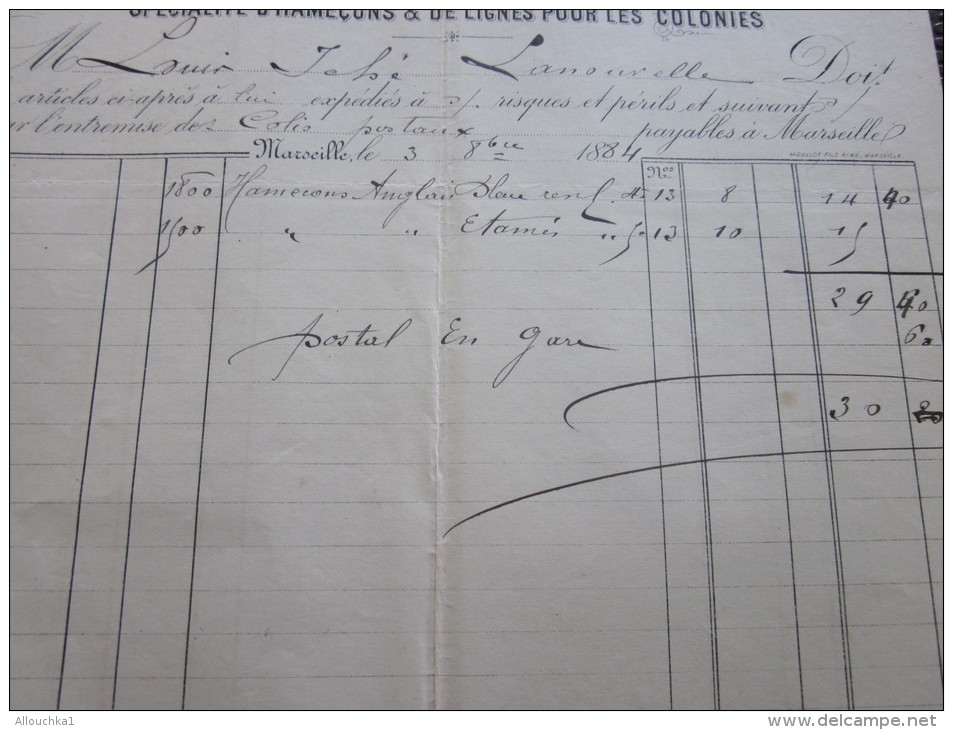 SPÉCIALITÉ D'HAMEÇONS & DE LIGNES POUR LES COLONIES
M Louis Ichè Lanouvelle Doit
articles ci-après à lui expédiés à s/ risques et périls et suivant
l'entremise des Colis postaux payables à Marseille
Marseille, le 3 8bre 1884
Nos
1800 Hameçons Anglais Bleu renf. 13 8 14 40
1500 " " Etamés " 13 10 15
29 40
postal En gare 60
30
Allouchka1
www.delcampe.net